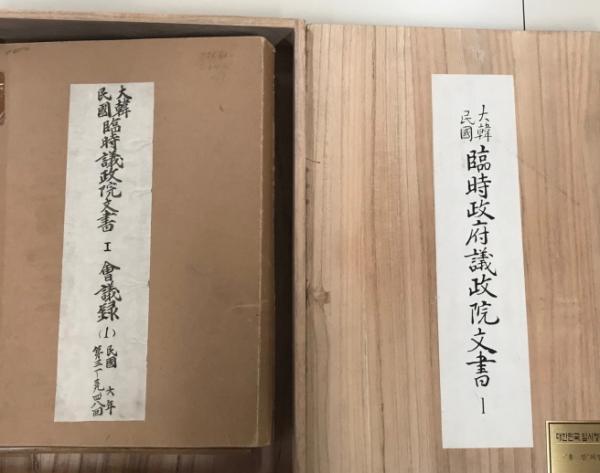 大韓
民國
臨時議政院文書 I 會議錄 (1)
民國 六年
四八回
大韓
民國
臨時政府議政院文書 1
대한민국 임시정